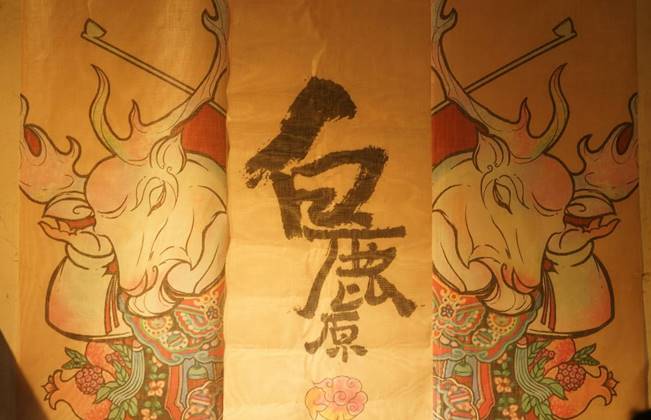 白鹿原